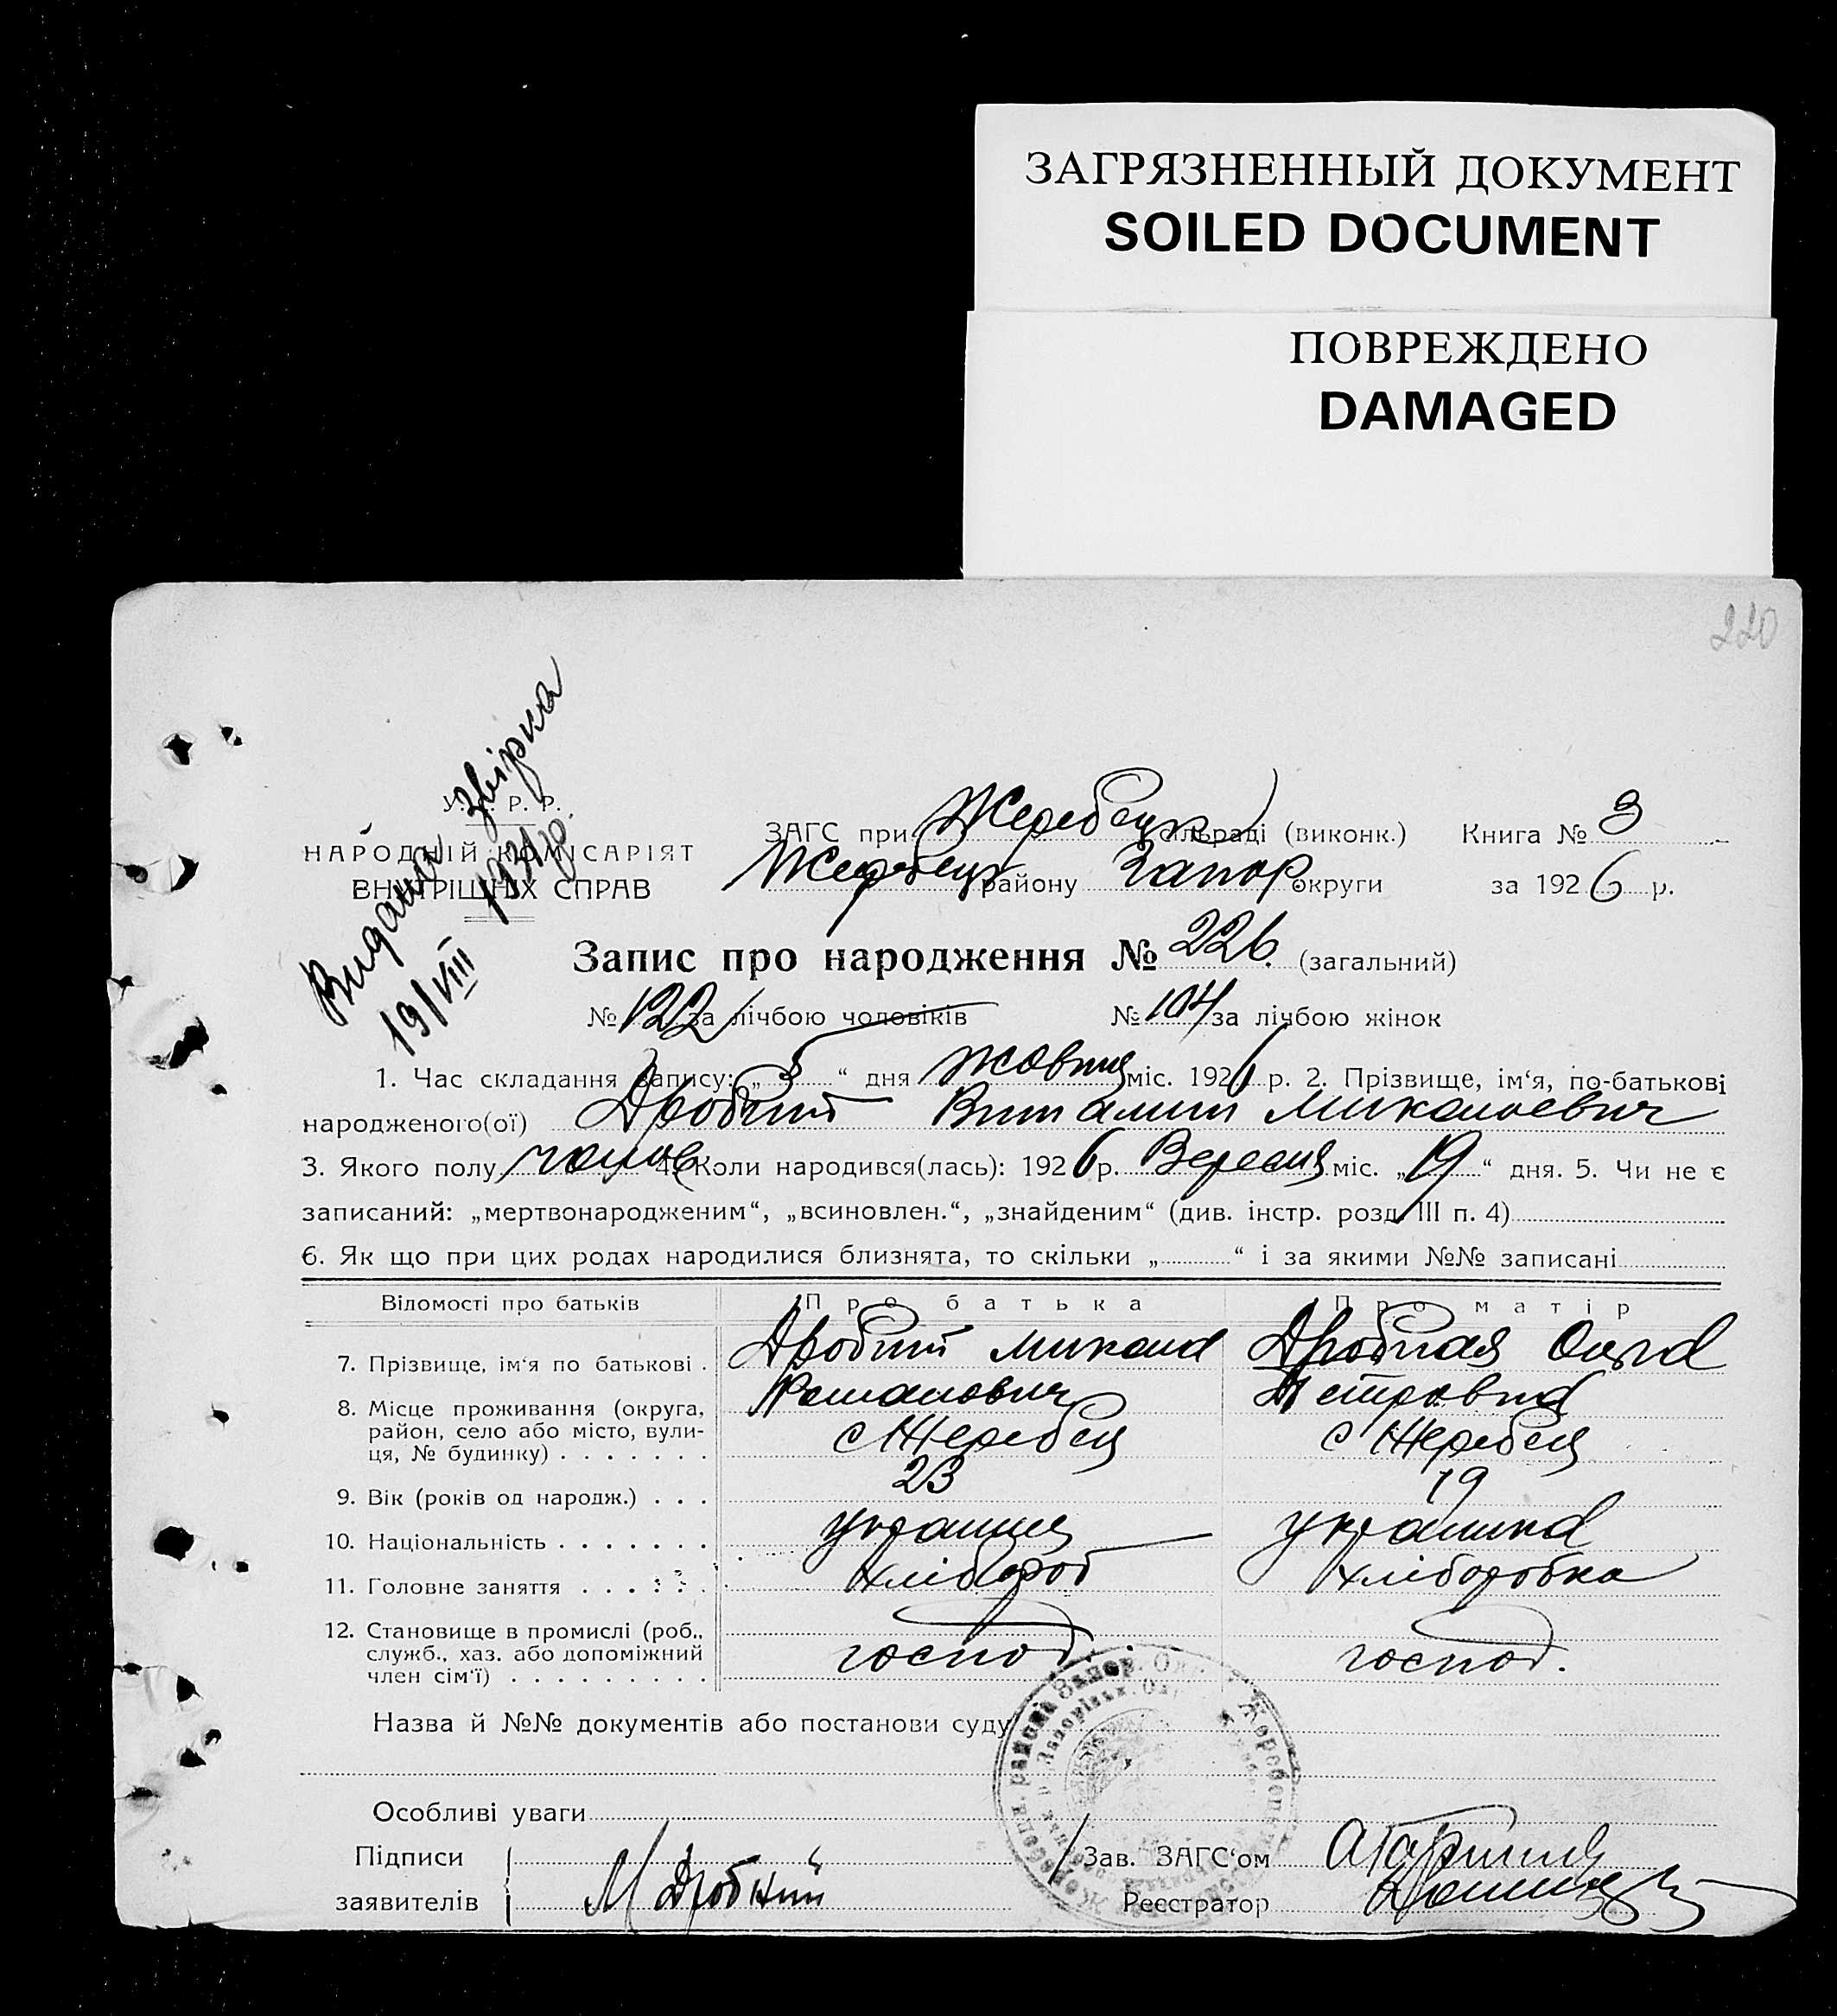 ЗАГРЯЗНЕННЫЙ ДОКУМЕНТ
SOILED DOCUMENT
ПОВРЕЖДЕНО
DAMAGED
220
Видана звірка
19/VIII 1931 р.
У. С. Р. Р.
НАРОДНІЙ КОМІСАРІЯТ
ВНУТРІШНІХ СПРАВ
ЗАГС при Жеребецк сільраді (виконк.) Книга № 3
Жеребецк району Запор округи за 1926 р.
Запис про народження № 226. (загальний)
№ 122 за лічбою чоловіків № 104 за лічбою жінок
1. Час складання запису: „ 5 “ дня жовтня міс. 1926 р. 2. Прізвище, ім‘я, по-батькові
народженого(ої) Дробний Виталий Миколаевич
3. Якого полу чолов. 4. Коли народився(лась): 1926 р. Вересня міс. „ 19 “ дня. 5. Чи не є
записаний: „мертвонародженим“, „всиновлен.“, „знайденим“ (див. інстр. розд. III п. 4)
6. Як що при цих родах народилися близнята, то скільки „ “ і за якими №№ записані
Відомості про батьків Про батька Про матір
7. Прізвище, ім‘я по батькові . Дробний Микола Романович Дробная Ольга Петровна
8. Місце проживання (округа, район, село або місто, вулиця, № будинку) . . . . . . . с Жеребец с Жеребец
9. Вік (років од народж.) . . . 23 19
10. Національність . . . . . . . українец українка
11. Головне заняття . . . . . . хлібороб хлеборобка
12. Становище в промислі (роб., служб., хаз. або допоміжний член сім‘ї) . . . . . . . . . господ господ.
Назва й №№ документів або постанови суду
Особливі уваги
Підписи
заявителів М Дробний
Зав. ЗАГС‘ом
Реєстратор